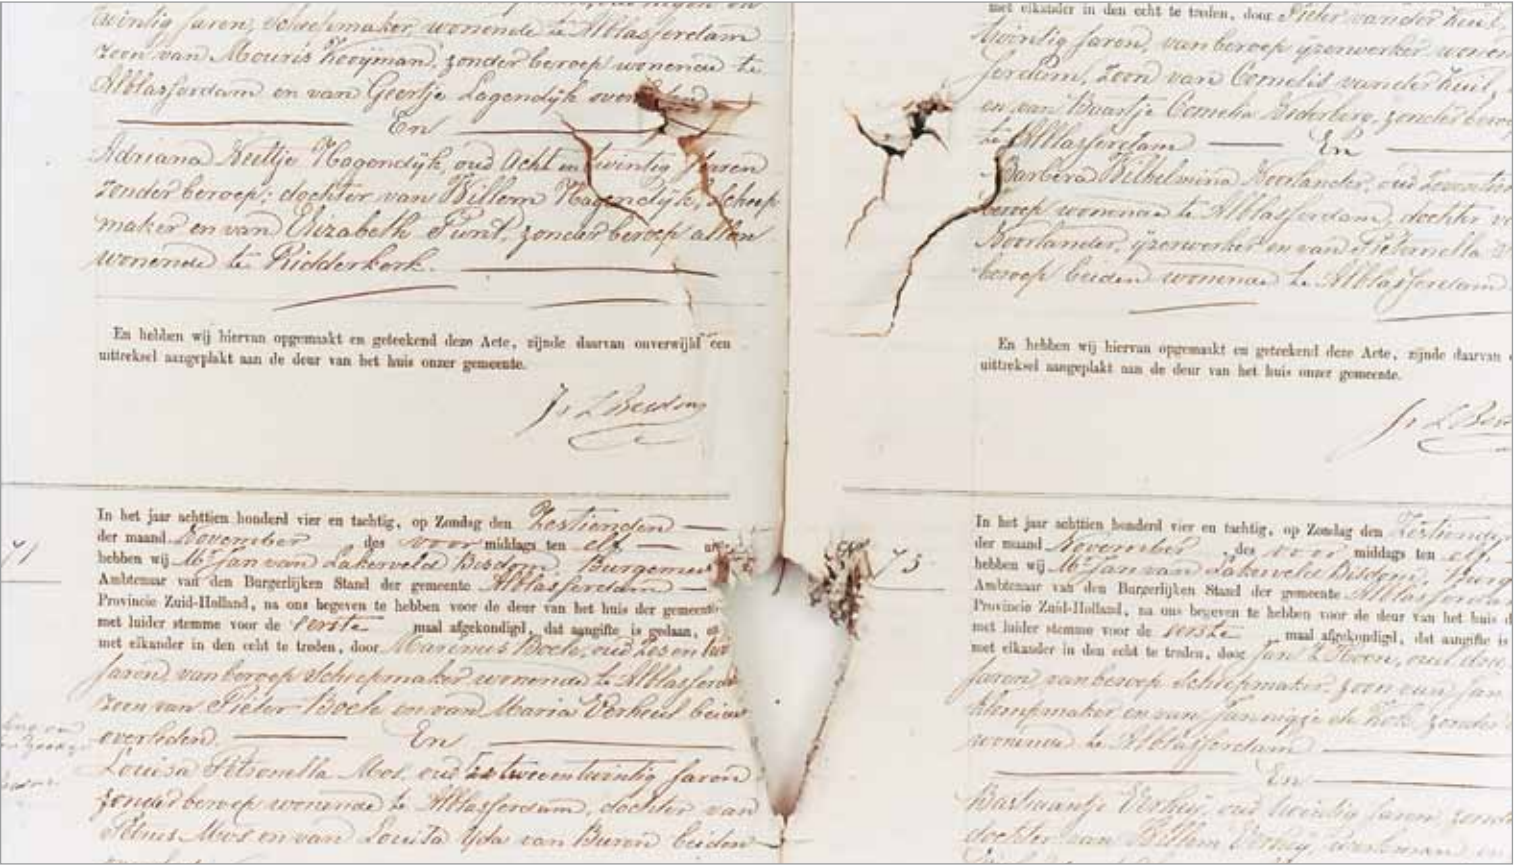 twintig jaren, Scheepmaker, wonende te Alblasserdam
zoon van Mouris Kooijman, zonder beroep wonende te
Alblasserdam en van Geertje Lagendijk overleden
En
Adriana Neeltje Hagendijk, oud Acht en twintig Jaren
zonder beroep; dochter van Willem Hagendijk, Scheep
maker en van Elizabeth Punt, zonder beroep allen
wonende te Ridderkerk.
En hebben wij hiervan opgemaakt en geteekend deze Acte, zijnde daarvan onverwijld een
uittreksel aangeplakt aan de deur van het huis onzer gemeente.
71
In het jaar achttien honderd vier en tachtig, op Zondag den Zestienden
der maand November des voor middags ten elf
hebben wij Mr Jan van Lakerveld Bisdom, Burgemees
Ambtenaar van den Burgerlijken Stand der gemeente Alblasserdam
Provincie Zuid-Holland, na ons begeven te hebben voor de deur van het huis der gemeente
met luider stemme voor de eerste maal afgekondigd, dat aangifte is gedaan, o
met elkander in den echt te treden, door Marinus Boele, oud Zes en twi
jaren, van beroep Scheepmaker wonende te Alblasserd
zoon van Pieter Boele en van Maria Verheul beiden
overleden. En
Louisa Petronella Mos, oud twee en twintig Jaren
zonder beroep wonende te Alblasserdam, dochter van
Mos en van Louisa Yda van Buren beiden
met elkander in den echt te treden, door Pieter van der Heul
twintig Jaren, van beroep ijzerwerker wonen
serdam, zoon van Cornelis van der Heul,
en van Cornelia zonder beroep
te Alblasserdam En
Barbera Wilhelmina Noorlander, oud
beroep wonende te Alblasserdam, dochter v
Noorlander, ijzerwerker en van Pieternella
beroep beiden wonende te Alblasserdam
En hebben wij hiervan opgemaakt en geteekend deze Acte, zijnde daarvan
uittreksel aangeplakt aan de deur van het huis onzer gemeente.
73
In het jaar achttien honderd vier en tachtig, op Zondag den Zestienden
der maand November des voor middags ten elf
hebben wij Mr Jan van Lakerveld Bisdom, Burg
Ambtenaar van den Burgerlijken Stand der gemeente Alblasserdam
Provincie Zuid-Holland, na ons begeven te hebben voor de deur van het huis d
met luider stemme voor de eerste maal afgekondigd, dat aangifte is
met elkander in den echt te treden, door Jan 't Hoen, oud
jaren, van beroep Scheepmaker, zoon van Jan
Klompmaker en van Jannigje de Kok, zonder
wonende te Alblasserdam
En
Bastiaantje Verheij, oud twintig jaren, zond
dochter van Willem Verheij, Werkman en